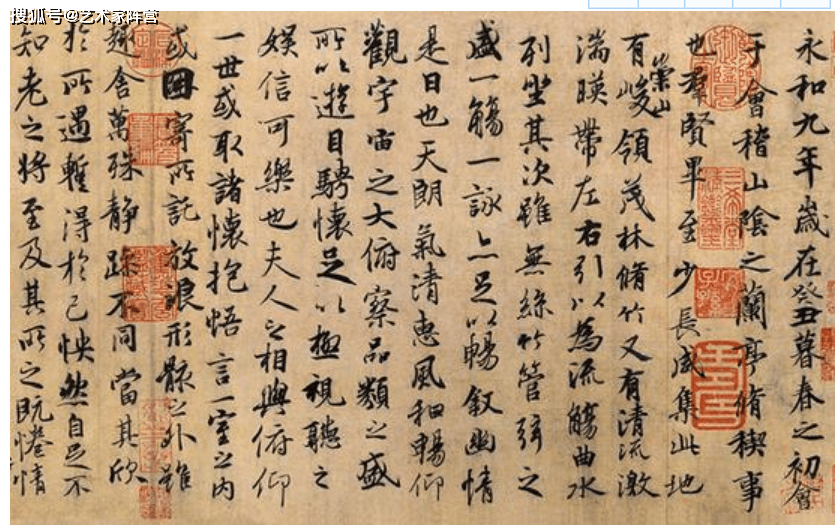 搜狐号@艺术家阵营
永和九年歲在癸丑暮春之初會
于會稽山陰之蘭亭脩稧事
也群賢畢至少長咸集此地
有崇山峻領茂林脩竹又有清流激
湍暎帶左右引以為流觴曲水
列坐其次雖無絲竹管弦之
盛一觴一詠亦足以暢敘幽情
是日也天朗氣清惠風和暢仰
觀宇宙之大俯察品類之盛
所以遊目騁懷足以極視聽之
娛信可樂也夫人之相與俯仰
一世或取諸懷抱悟言一室之內
或因寄所託放浪形骸之外雖
趣舍萬殊靜躁不同當其欣
於所遇暫得於己怏然自足不
知老之將至及其所之既惓情